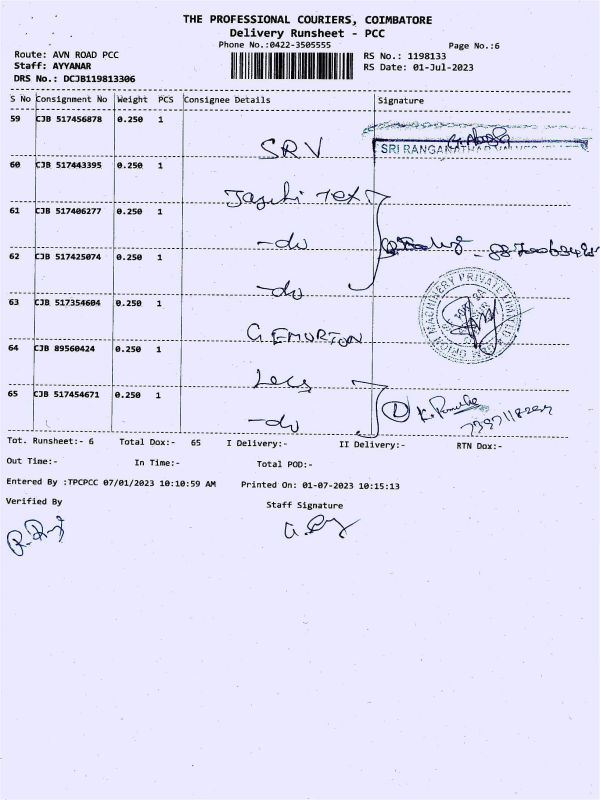 THE PROFESSIONAL COURIERS, COIMBATORE
Delivery Runsheet - PCC
Phone No.:0422-3505555
Page No.:6
Route: AVN ROAD PCC
RS No.: 1198133
Staff: AYYANAR
RS Date: 01-Jul-2023
DRS No.: DCJB119813306
S No Consignment No Weight PCS Consignee Details Signature
59 CJB 517456878 0.250 1
SRV
SRI RANGANATHAR
60 CJB 517443395 0.250 1
61 CJB 517406277 0.250 1
-do
62 CJB 517425074 0.250 1
-do
63 CJB 517354604 0.250 1
MACHINERY PRIVATE LIMITED
64 CJB 89560424 0.250 1
65 CJB 517454671 0.250 1
-do
Tot. Runsheet:- 6 Total Dox:- 65 I Delivery:- II Delivery:- RTN Dox:-
Out Time:- In Time:- Total POD:-
Entered By :TPCPCC 07/01/2023 10:10:59 AM Printed On: 01-07-2023 10:15:13
Verified By Staff Signature